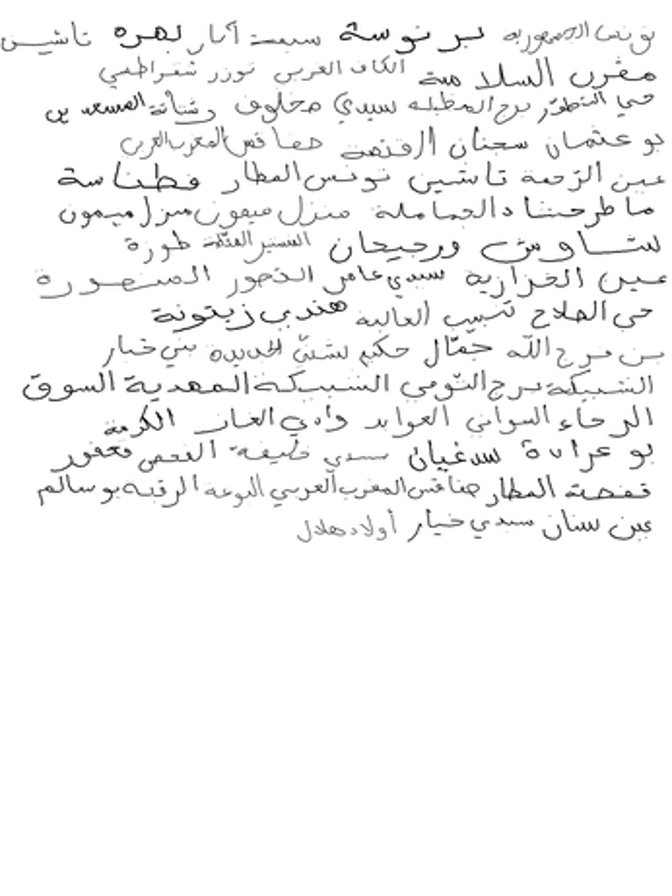 تونس الجمهورية برنوسة سبعة آبار لهرة تاشين
مقرن السلامية الكاف الغربي توزر شقراطسي
حي التطور برج سيدي مخلوف وشتاتة المسعدين
بو عثمان سجنان القنصة صفاقس المغرب العربي
عين الرحمة تاشين تونس المطار فطناسة
ماطر حشاد الجماملة منزل ميمون منزل ميمون
شاوش ورجيحان القنتة طورة
عين الخرارية سيدي عامر الدخور المنصورة
حي الفلاح العالية هندي زيتونة
بن فرج الله جمّال حكيم الجديدة بني خيار
الشبيكة برج التومي الشبيكة المهدية السوق
الرحاء السواني العوابد وادي الغار الكرمة
بو عرادة سدغيان سيدي خليفة الفحص قعفور
قفصة المطار صفاقس المغرب العربي الرقبة بو سالم
عين سنان سيدي خيار أولاد هلال